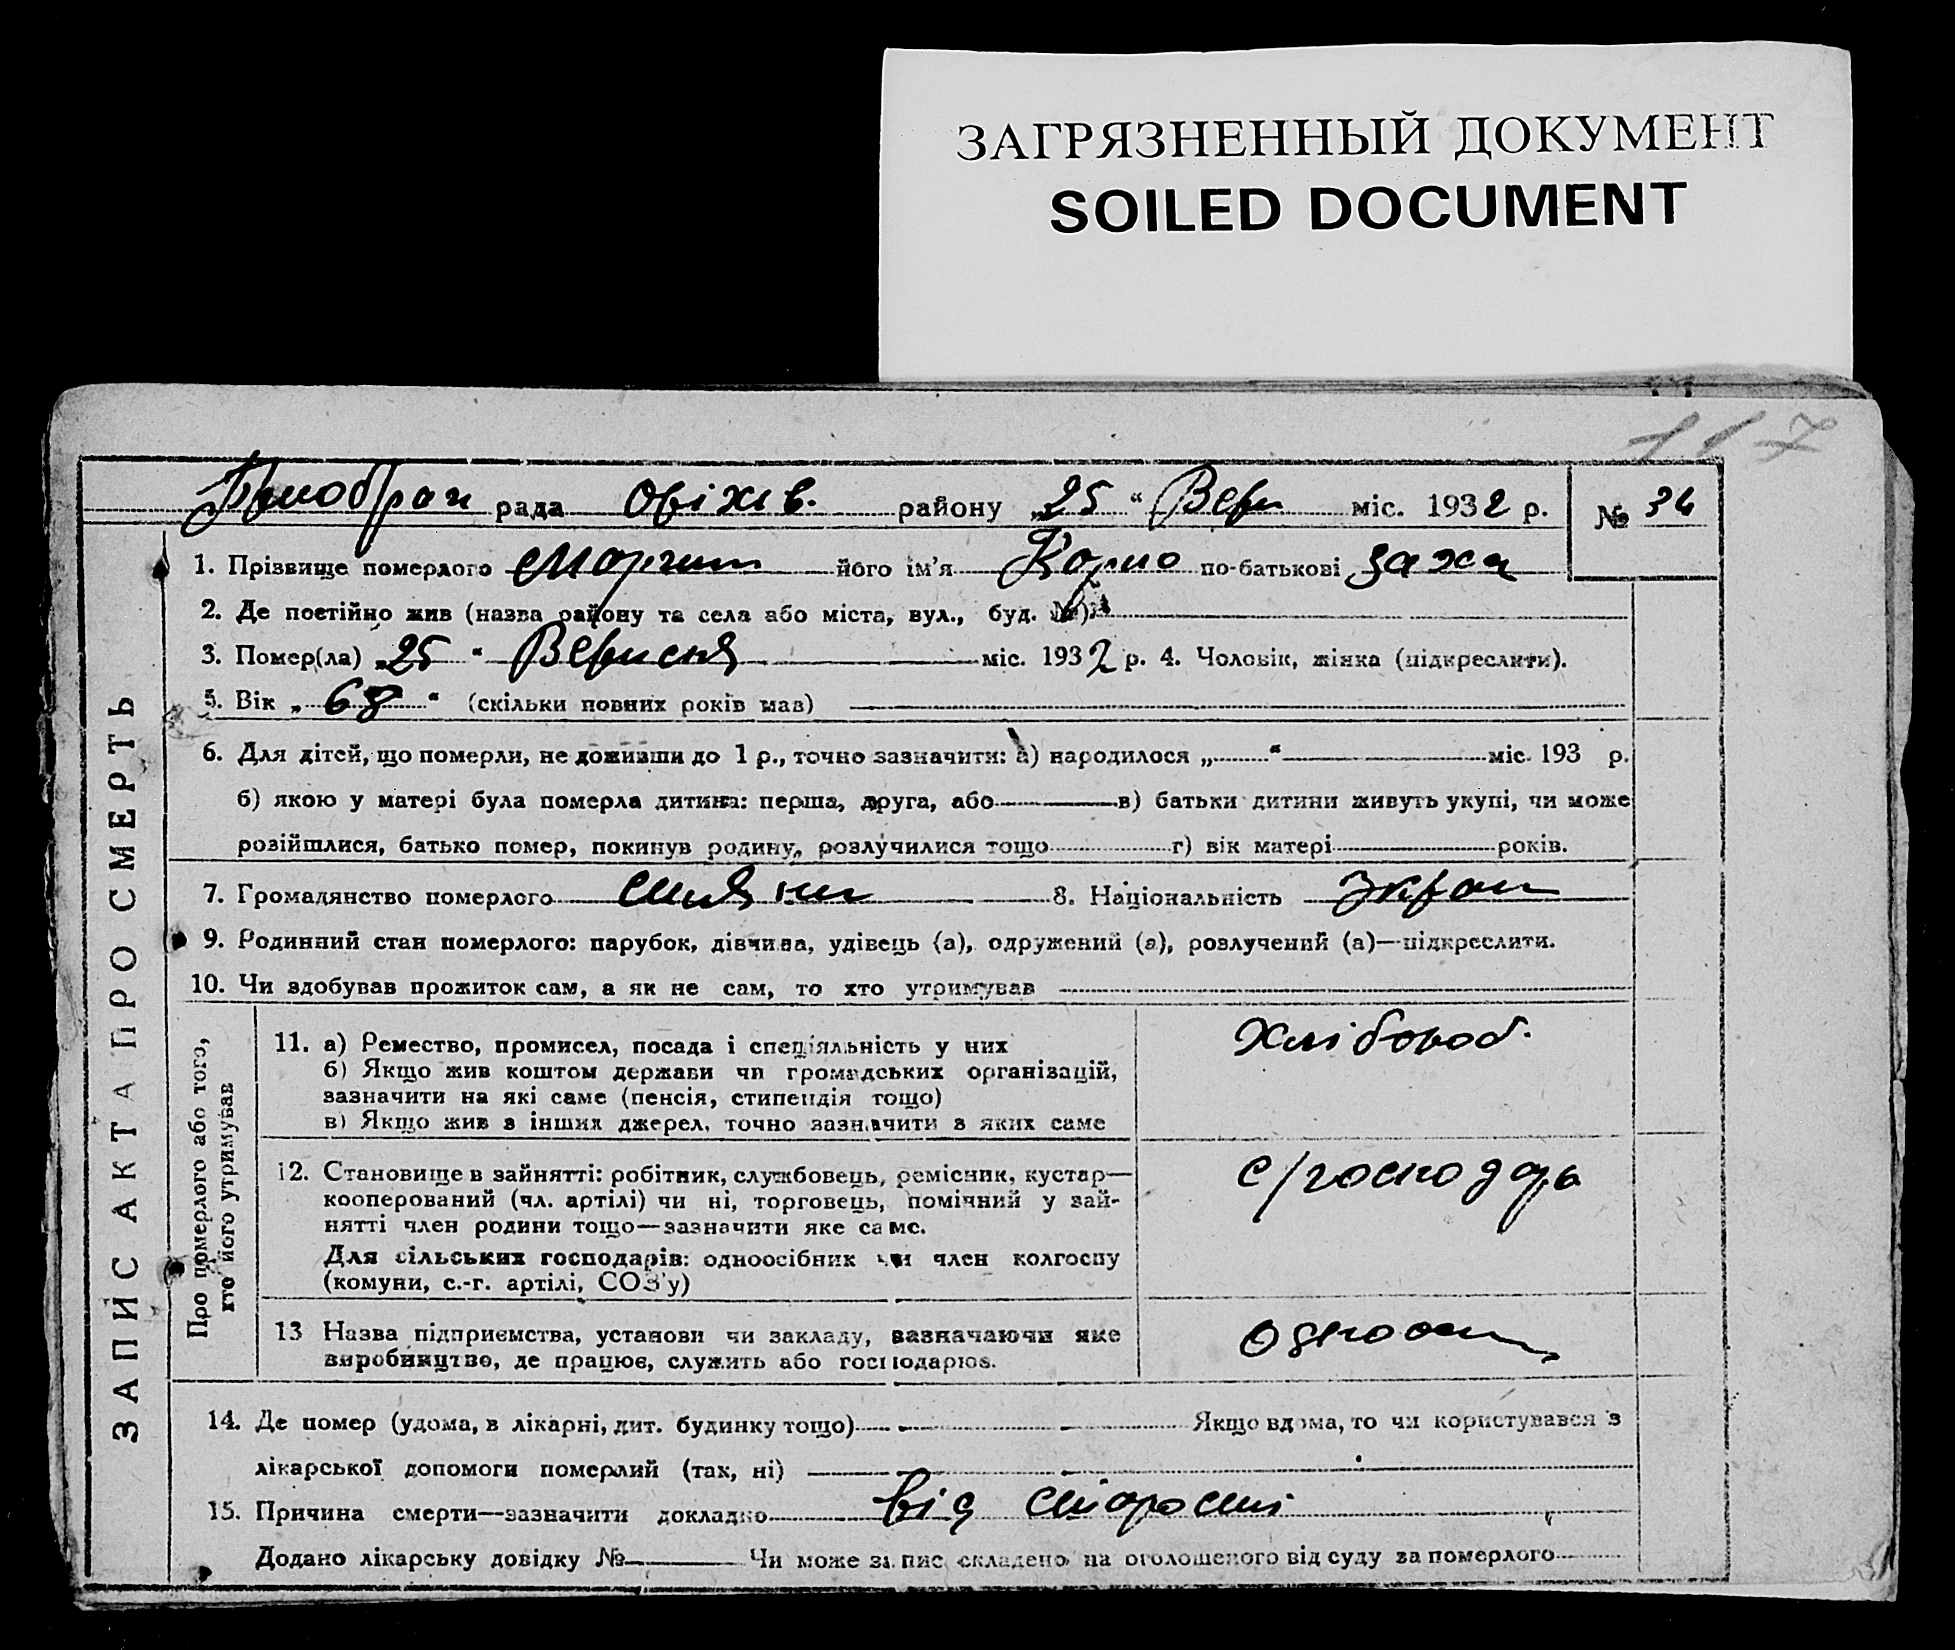 ЗАГРЯЗНЕННЫЙ ДОКУМЕНТ
SOILED DOCUMENT
117
рада Оріхів. району „25“ Верн міс. 1932 р. № 34
1. Прізвище померлого його ім'я по-батькові Заха
2. Де постійно жив (назва району та села або міста, вул., буд. №)
3. Помер(ла) „25“ Вернсня міс. 1932 р. 4. Чоловік, жінка (підкреслити).
5. Вік „68“ (скільки повних років мав)
6. Для дітей, що померли, не доживши до 1 р., точно зазначити: а) народилося „ “ міс. 193 р.
б) якою у матері була померла дитина: перша, друга, або в) батьки дитини живуть укупі, чи може
розійшлися, батько помер, покинув родину, розлучилися тощо г) вік матері років.
7. Громадянство померлого 8. Національність Украй
9. Родинний стан померлого: парубок, дівчина, удівець (а), одружений (а), розлучений (а)—підкреслити.
10. Чи здобував прожиток сам, а як не сам, то хто утримував
ЗАПИС АКТА ПРО СМЕРТЬ
Про померлого або того,
хто його утримував
11. а) Ремество, промисел, посада і спеціяльність у них
б) Якщо жив коштом держави чи громадських організацій,
зазначити на які саме (пенсія, стипендія тощо)
в) Якщо жив з інших джерел, точно зазначити з яких саме
Хлібороб.
12. Становище в зайнятті: робітник, службовець, ремісник, кустар—
кооперований (чл. артілі) чи ні, торговець, помічний у зай-
нятті член родини тощо—зазначити яке саме.
Для сільських господарів: одноосібник чи член колгоспу
(комуни, с.-г. артілі, СОЗ'у)
с/господарь
13 Назва підприємства, установи чи закладу, зазначаючи яке
виробництво, де працює, служить або господарює.
Одноос
14. Де помер (удома, в лікарні, дит. будинку тощо) Якщо вдома, то чи користувався з
лікарської допомоги померлий (так, ні)
15. Причина смерти—зазначити докладно від старости
Додано лікарську довідку № Чи може запис складено на оголошеного від суду за померлого